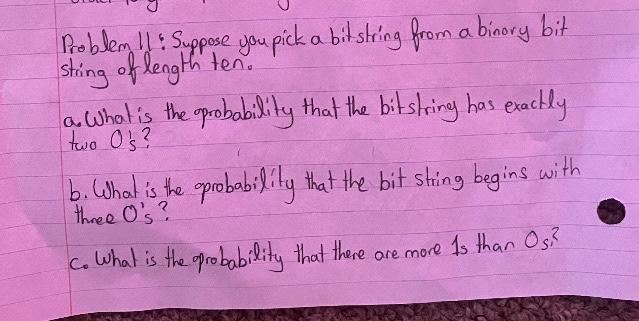 Problem 11: Suppose you pick a bitstring from a binary bit
string of length ten.
a. What is the probability that the bitstring has exactly
two 0's?
b. What is the probability that the bit string begins with
three 0's?
c. What is the probability that there are more 1s than 0s?